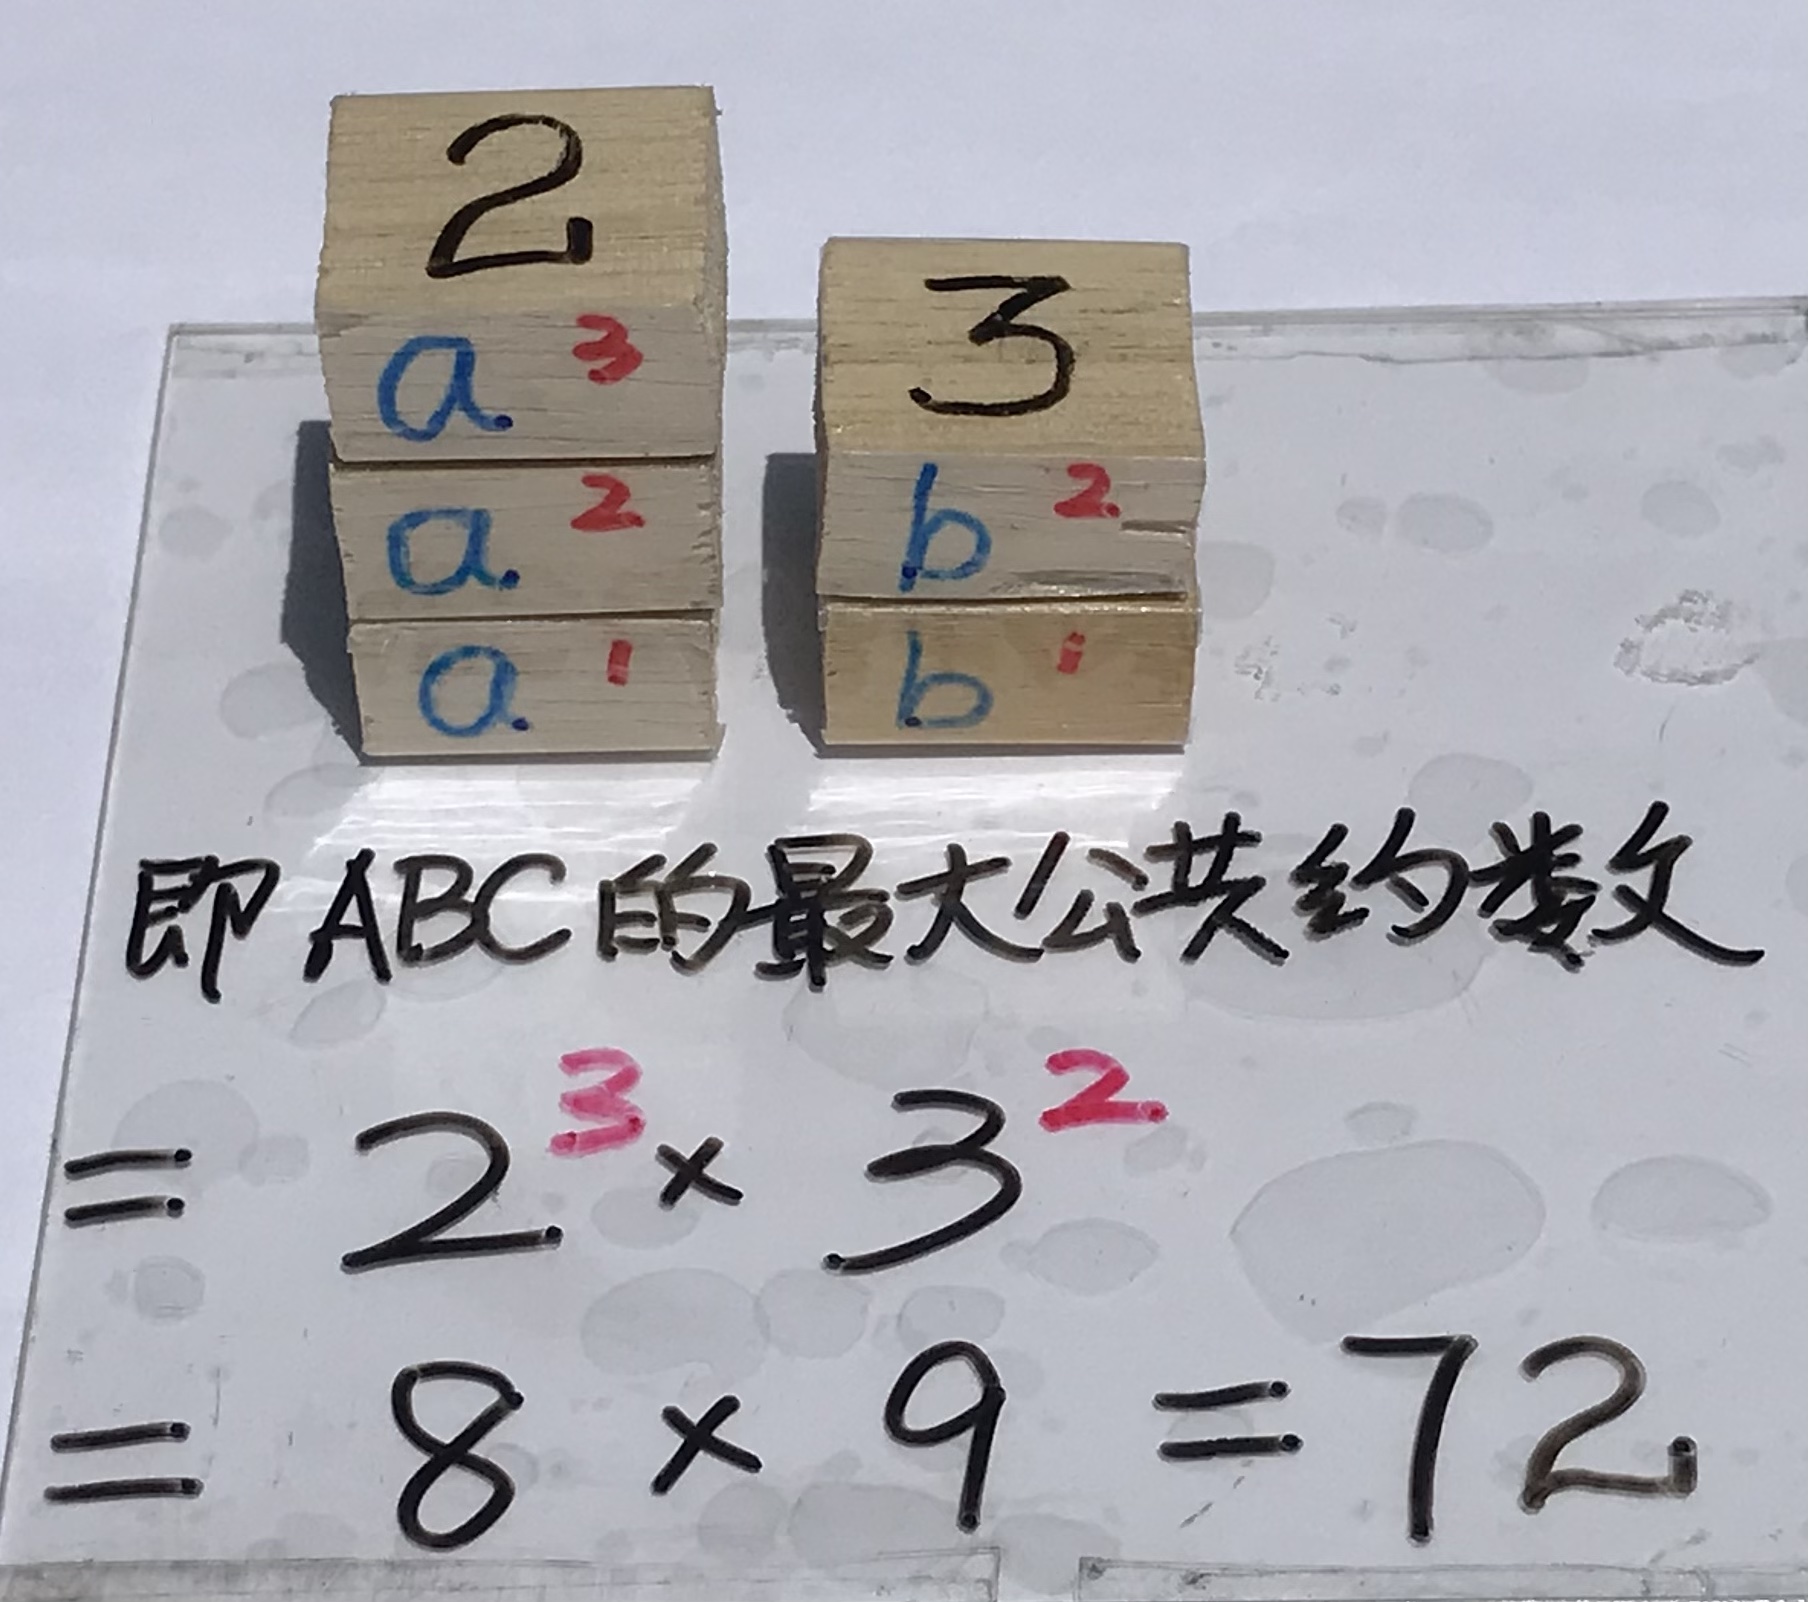 2
3
a³
b²
a²
a¹
b¹
即ABC的最大公共约数
= 2³ × 3²
= 8 × 9 = 72